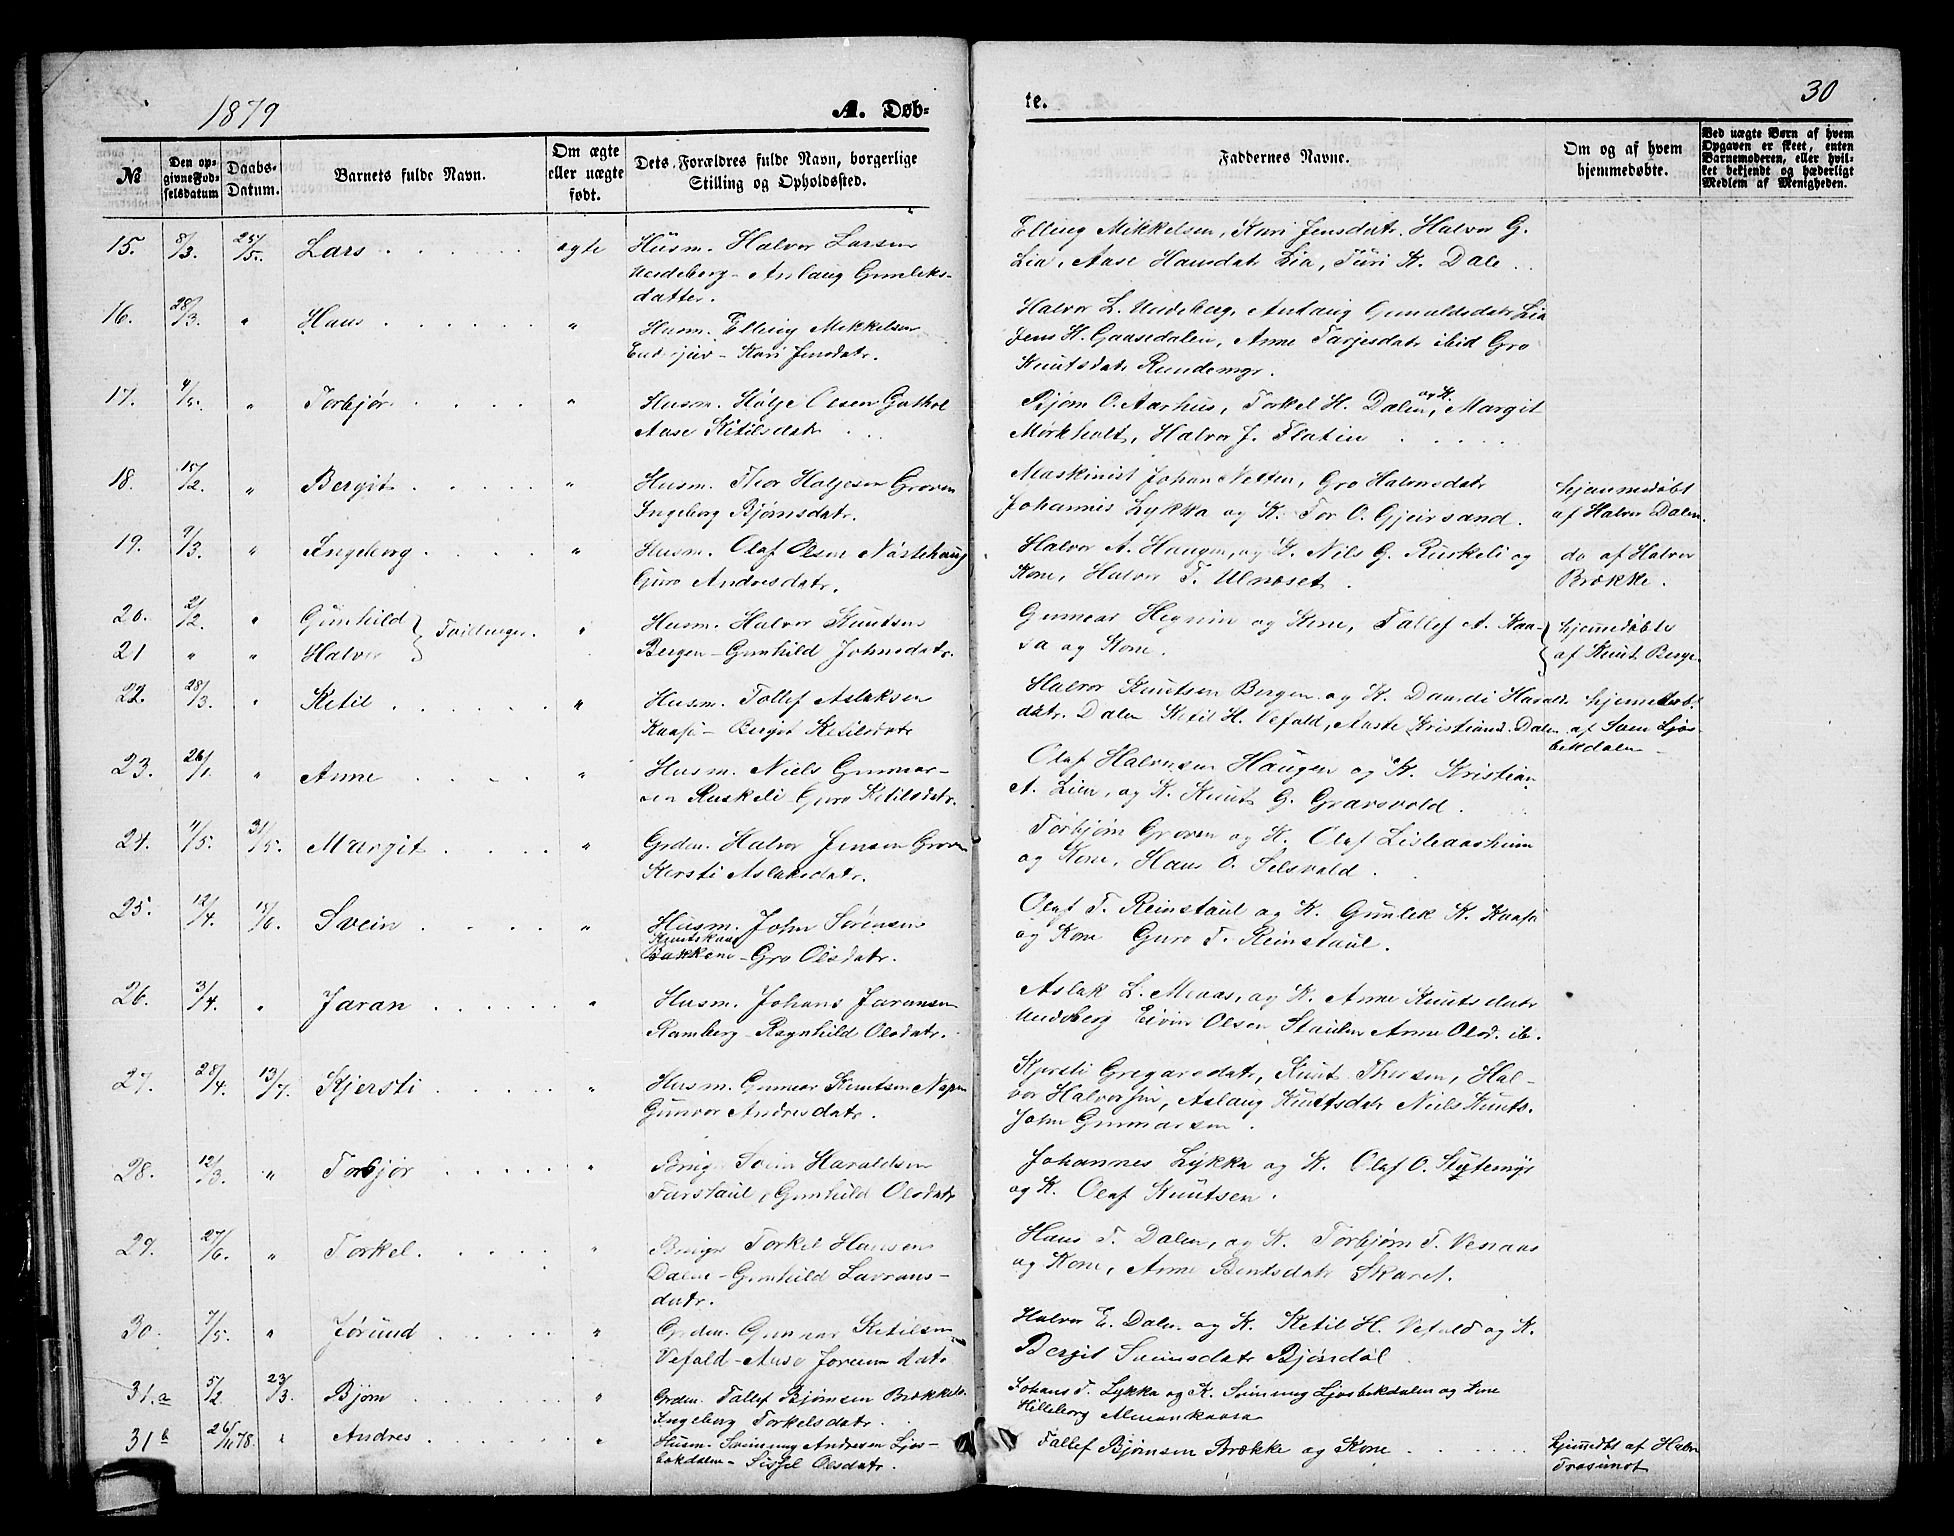 1879
A. Døb-
te.
30
№
Den op-
givne Fød-
selsdatum
Daabs-
Datum.
Barnets fulde Navn.
Om ægte
eller uægte
født.
Dets Forældres fulde Navn, borgerlige
Stilling og Opholdssted.
Faddernes Navne.
Om og af hvem
hjemmedøbte.
Ved uægte Børn af hvem
Opgaven er skeet, enten
Barnemoderen, eller hvil-
ket bekjendt og hæderligt
Medlem af Menigheden.
15. 8/3. 25/5. Lars ægte Husm. Halvor Larsen
Undeberg - Aslaug Gunleks-
datter.
Elling Mikkelsen, Kari Jensdatr. Halvor G.
Lia, Aase Hansdatr Lia, Turi K. Dale
16. 28/3. " Hans " Husm. Elling Mikkelsen
- Kari Jensdatr.
Halvor L. Undeberg, Aslaug Gunuldsdatr Lia
Jens H. Gaasedalen, Anne Tarjesdatr ibid Gro
Knutsdatr Rundemyr.
17. 4/5. " Torbjør " Husm. Hølje Olsen Gathol
Aase Ketilsdatr
Bjørn O. Aarhus, Torkel H. Dalen, og K. Margit
Mørkholt, Halvor J. Flatin
18. 15/2. " Bergit " Husm. Thor Høljesen Groven
Ingeborg Bjørnsdatr.
Maskinist Johan Netten, Gro Halvorsdatr
Johannis Lykka og K. Tor O. Gjeirsand.
hjemmedøbt
af Halvor Dalen.
19. 9/3. " Ingeborg " Husm. Olaf Olsen Nøstehaug
Guro Andresdatr.
Halvor A. Haugen, og K. Nils G. Ruskeli og
Kone, Halvor T. Ulnæset.
do af Halvor
Brække.
20. 21/2. " Gunhild } Tvillinger. " Husm. Halvor Knutsen
Gunnar Hegnin og Kone, Tallef A. Kaa-
hjemmedøbte
21 " " Halvor
Bergen - Gunhild Johnsdatr.
sa og Kone.
af Knut Berge.
22. 28/3. " Ketil " Husm. Tollef Aslaksen
Kaasi - Bergit Ketilsdatr
Halvor Knutsen Bergen og K. Daardi Harald
datr. Dalen Ketil H. Vefald, Aaste Kristiansd. Dalen
hjemmedøbt
af Svein Ljos-
bekdalen
23. 26/1. " Anne " Husm. Niels Gunnar-
sen Ruskeli Guro Ketilsdatr.
Olaf Halvorsen Haugen og K. Kristian
A. Lien, og K. Knut G. Gransvold.
24. 11/5. 31/5. Margit " Grden. Halvor Jensen Groven
Kersti Aslaksdatr.
Torbjørn Groven og K. Olaf Lisleaasheim
og Kone, Hans O. Selsvold.
25. 12/4. 15/6. Svein " Husm. John Sørensen
Knutskaas
Bakkene - Gro Olsdatr.
Olaf T. Reinstaul og K. Gunlek K. Kaasi
og Kone Guro T. Reinstaul.
26. 3/4. " Jaran " Husm. Johans Jaransen
Ramberg - Ragnhild Olsdatr.
Aslak L. Moaas, og K. Anne Knutsdatr
Undeberg Eivin Olsen Staulen Anne Olsd. ib.
27. 28/4. 13/7. Kjersti " Husm. Gunnar Knutsen Napen
Gunvor Andresdatr.
Kjersti Gregarsdatr, Knut Thorsen, Hal-
vor Halvorsen, Aslaug Knutsdatr Niels Knuts.
John Gunnarsen.
28. 12/3. " Torbjør " Brugr Svein Haraldsen
Tarstaul, Gunhild Olsdatr
Johannes Lykka og K. Olaf O. Skytemyr
og K. Olaf Knutsen.
29. 27/6. " Torkel. " Brugr Torkel Hansen
Dalen - Gunhild Lavrans-
datr.
Hans T. Dalen, og K. Torbjørn T. Venaas
og Kone, Anne Bentsdatr Skaret.
30. 7/5. " Jørund " Grden. Gunnar Ketilsen
Vefald - Aase Jorunsdatr
Halvor E. Dalen og K. Ketil H. Vefald og K.
Bergit Sveinsdatr Bjøndal.
31.a 5/2. 23/3. Bjørn " Grden. Tallef Bjørnsen Brække
Ingeborg Torkelsdatr.
Johans T. Lykka og K. Svinung Ljosbekdalen og Kone
Hilleborg
31b 26/11 78. " Andres " Husm. Svinung Andresen Ljos-
bekdalen - Sissel Olsdatr.
Tallef Bjørnsen Brække og Kone
hjemedøbt af Halvor